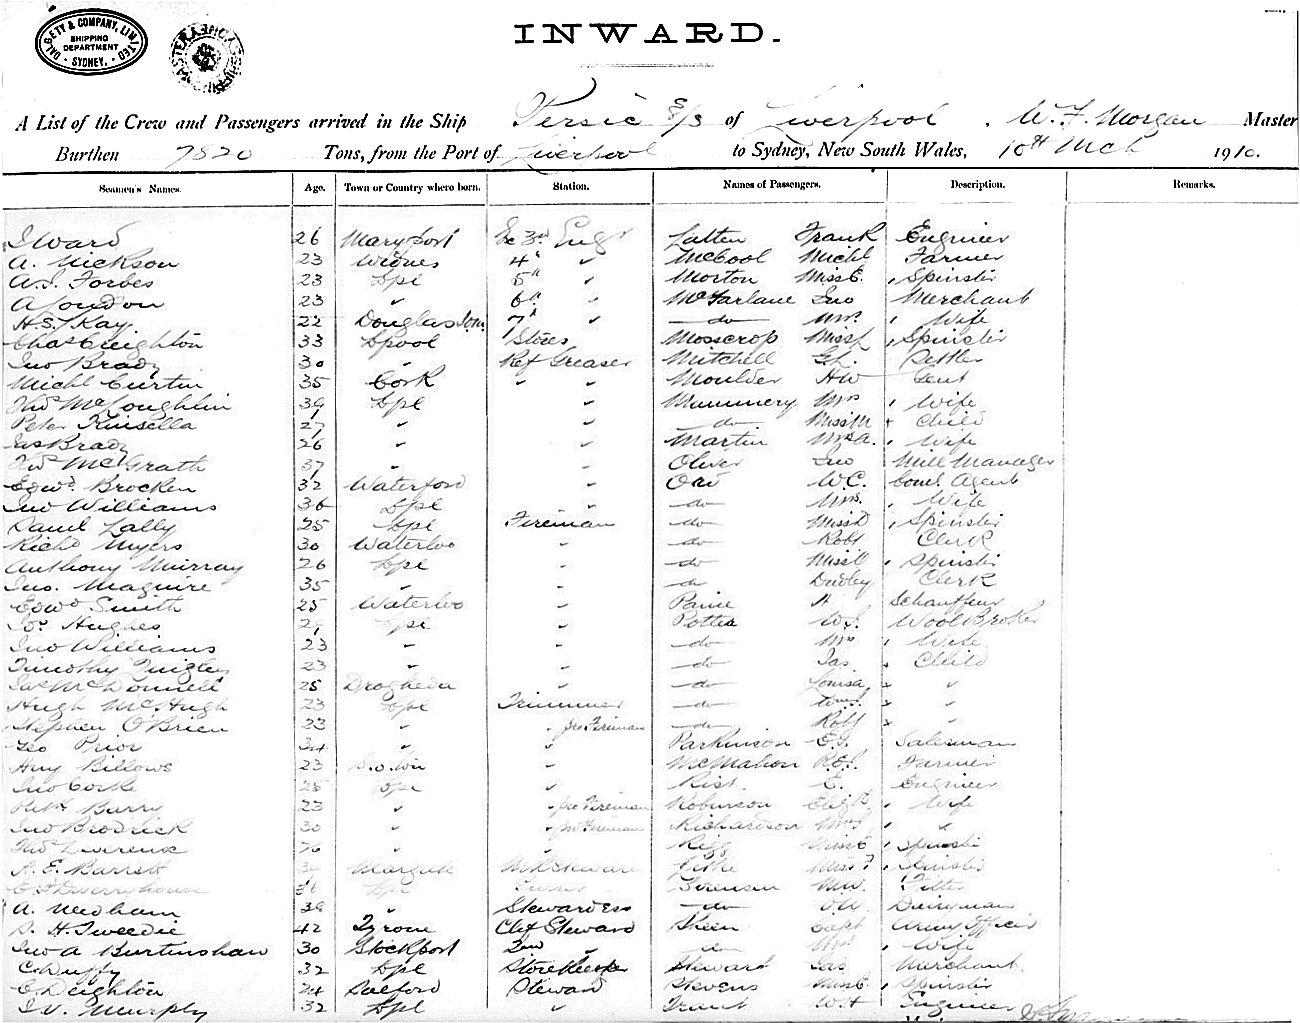 DALGETY & COMPANY, LIMITED
SHIPPING DEPARTMENT
SYDNEY.
INWARD.
A List of the Crew and Passengers arrived in the Ship Persic S/S of Liverpool, W. F. Morgan Master
Burthen 7820 Tons, from the Port of Liverpool to Sydney, New South Wales, 10th Mch 1910.
Seamen's Names. Age. Town or Country where born. Station. Names of Passengers. Description. Remarks.
J Ward 26 Maryport Ex 3rd Engr Latten Frank Engineer
A. Nickson 23 Widnes 4th " McCool Michl Farmer
A.J. Forbes 23 Lpl 5th " Morton Miss E. Spinster
A Loudon 23 " 6th " McFarlane Jno Merchant
H.S. Kay. 22 Douglas Iom. 7th " do Mrs. Wife
Chas Creighton 33 Lpool Stores Mosscrop Miss Spinster
Jno Brady 30 " Ref Greaser Mitchell Settler
Michl Curtin 35 Cork " " Moulder HW Gent
Thos McLoughlin 39 Lpl " Mummery Mrs Wife
Peter Kinsella 27 " " do Miss M Child
Jas Brady 26 " " Martin Mrs A. Wife
Thos McGrath 37 " " Oliver Jno Mill Manager
Edwd. Brocken 32 Waterford " W.C. Coml Agent
Jno Williams 36 Lpl " do Mrs. Wife
Danl Lally 25 Lpl Fireman do Miss Spinster
Richd Myers 30 Waterloo " do Robt Clerk
Anthony Murray 26 Lpl " do Miss Spinster
Jno. Maguire 35 " " do Dudley Clerk
Edwd Smith 25 Waterloo " Paine Schauffeur
Jos Hughes Lpl " Potter W.J. Wool Broker
Jno Williams 23 " " do Mrs Wife
Timothy Quigley 23 " " do Jas Child
Jas McDonnell 25 Drogheda " do Louisa "
Hugh McHugh 23 Lpl Trimmer do "
Stephen O'Brien 23 " " Fireman do Robt "
Geo Prior 34 " " Parkinson Salesman
Hny Billows 23 " McMahon Farmer
Jno Corke 25 Lpl " Rist E. Engineer
Barry 23 " " Fireman Robinson Wife
Jno Brodrick 30 " " Fireman Richardson "
Thos Devereux " " Rigg Miss E Spinster
A. E. Barrett Margate Miss Spinster
C F Dwerryhouse Lpl Sorensen Fitter
A. Needham 39 " Stewardess do Dairyman
S. H. Tweedie 42 Tyrone Chf Steward Skeen Capt Army Officer
Jno A Burtinshaw 30 Stockport 2nd " do Mrs Wife
C Duffy 32 Lpl Storekeeper Stewart Jas Merchant
C Deighton 24 Salford Steward Stevens Miss Spinster
Murphy 32 Lpl " Trant W H Engineer